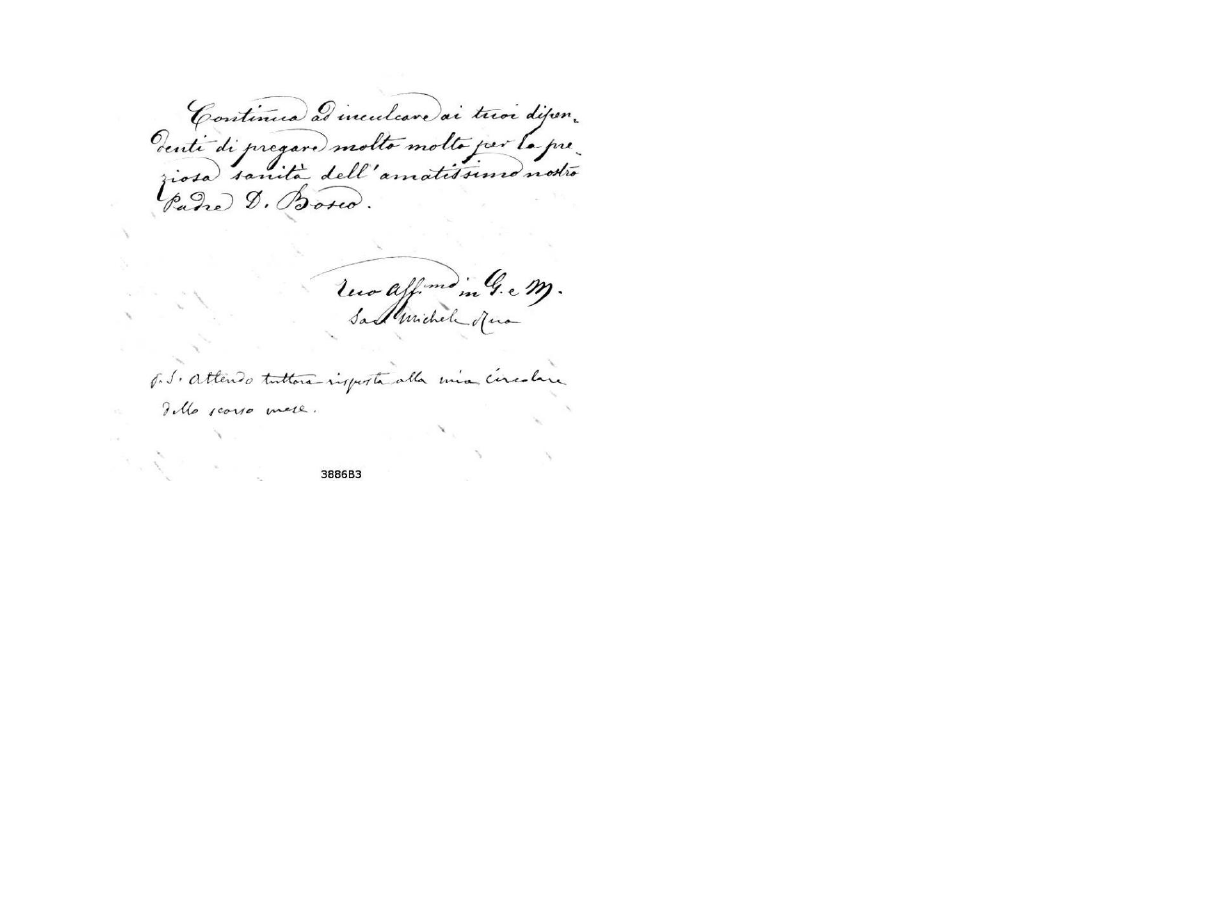 Continua ad inculcare ai tuoi dipen-
denti di pregare molto molto per la pre-
ziosa sanità dell'amatissimo nostro
Padre D. Bosco.
Tuo Aff.mo in G. e M.
Sac Michele Rua
P.S. Attendo tuttora risposta alla mia circolare
dello scorso mese.
3886B3